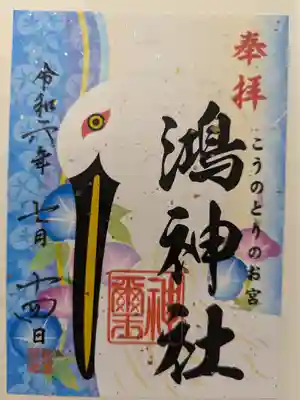 奉拝
こうのとりのお宮
鴻神社
令和六年
七月
十四日